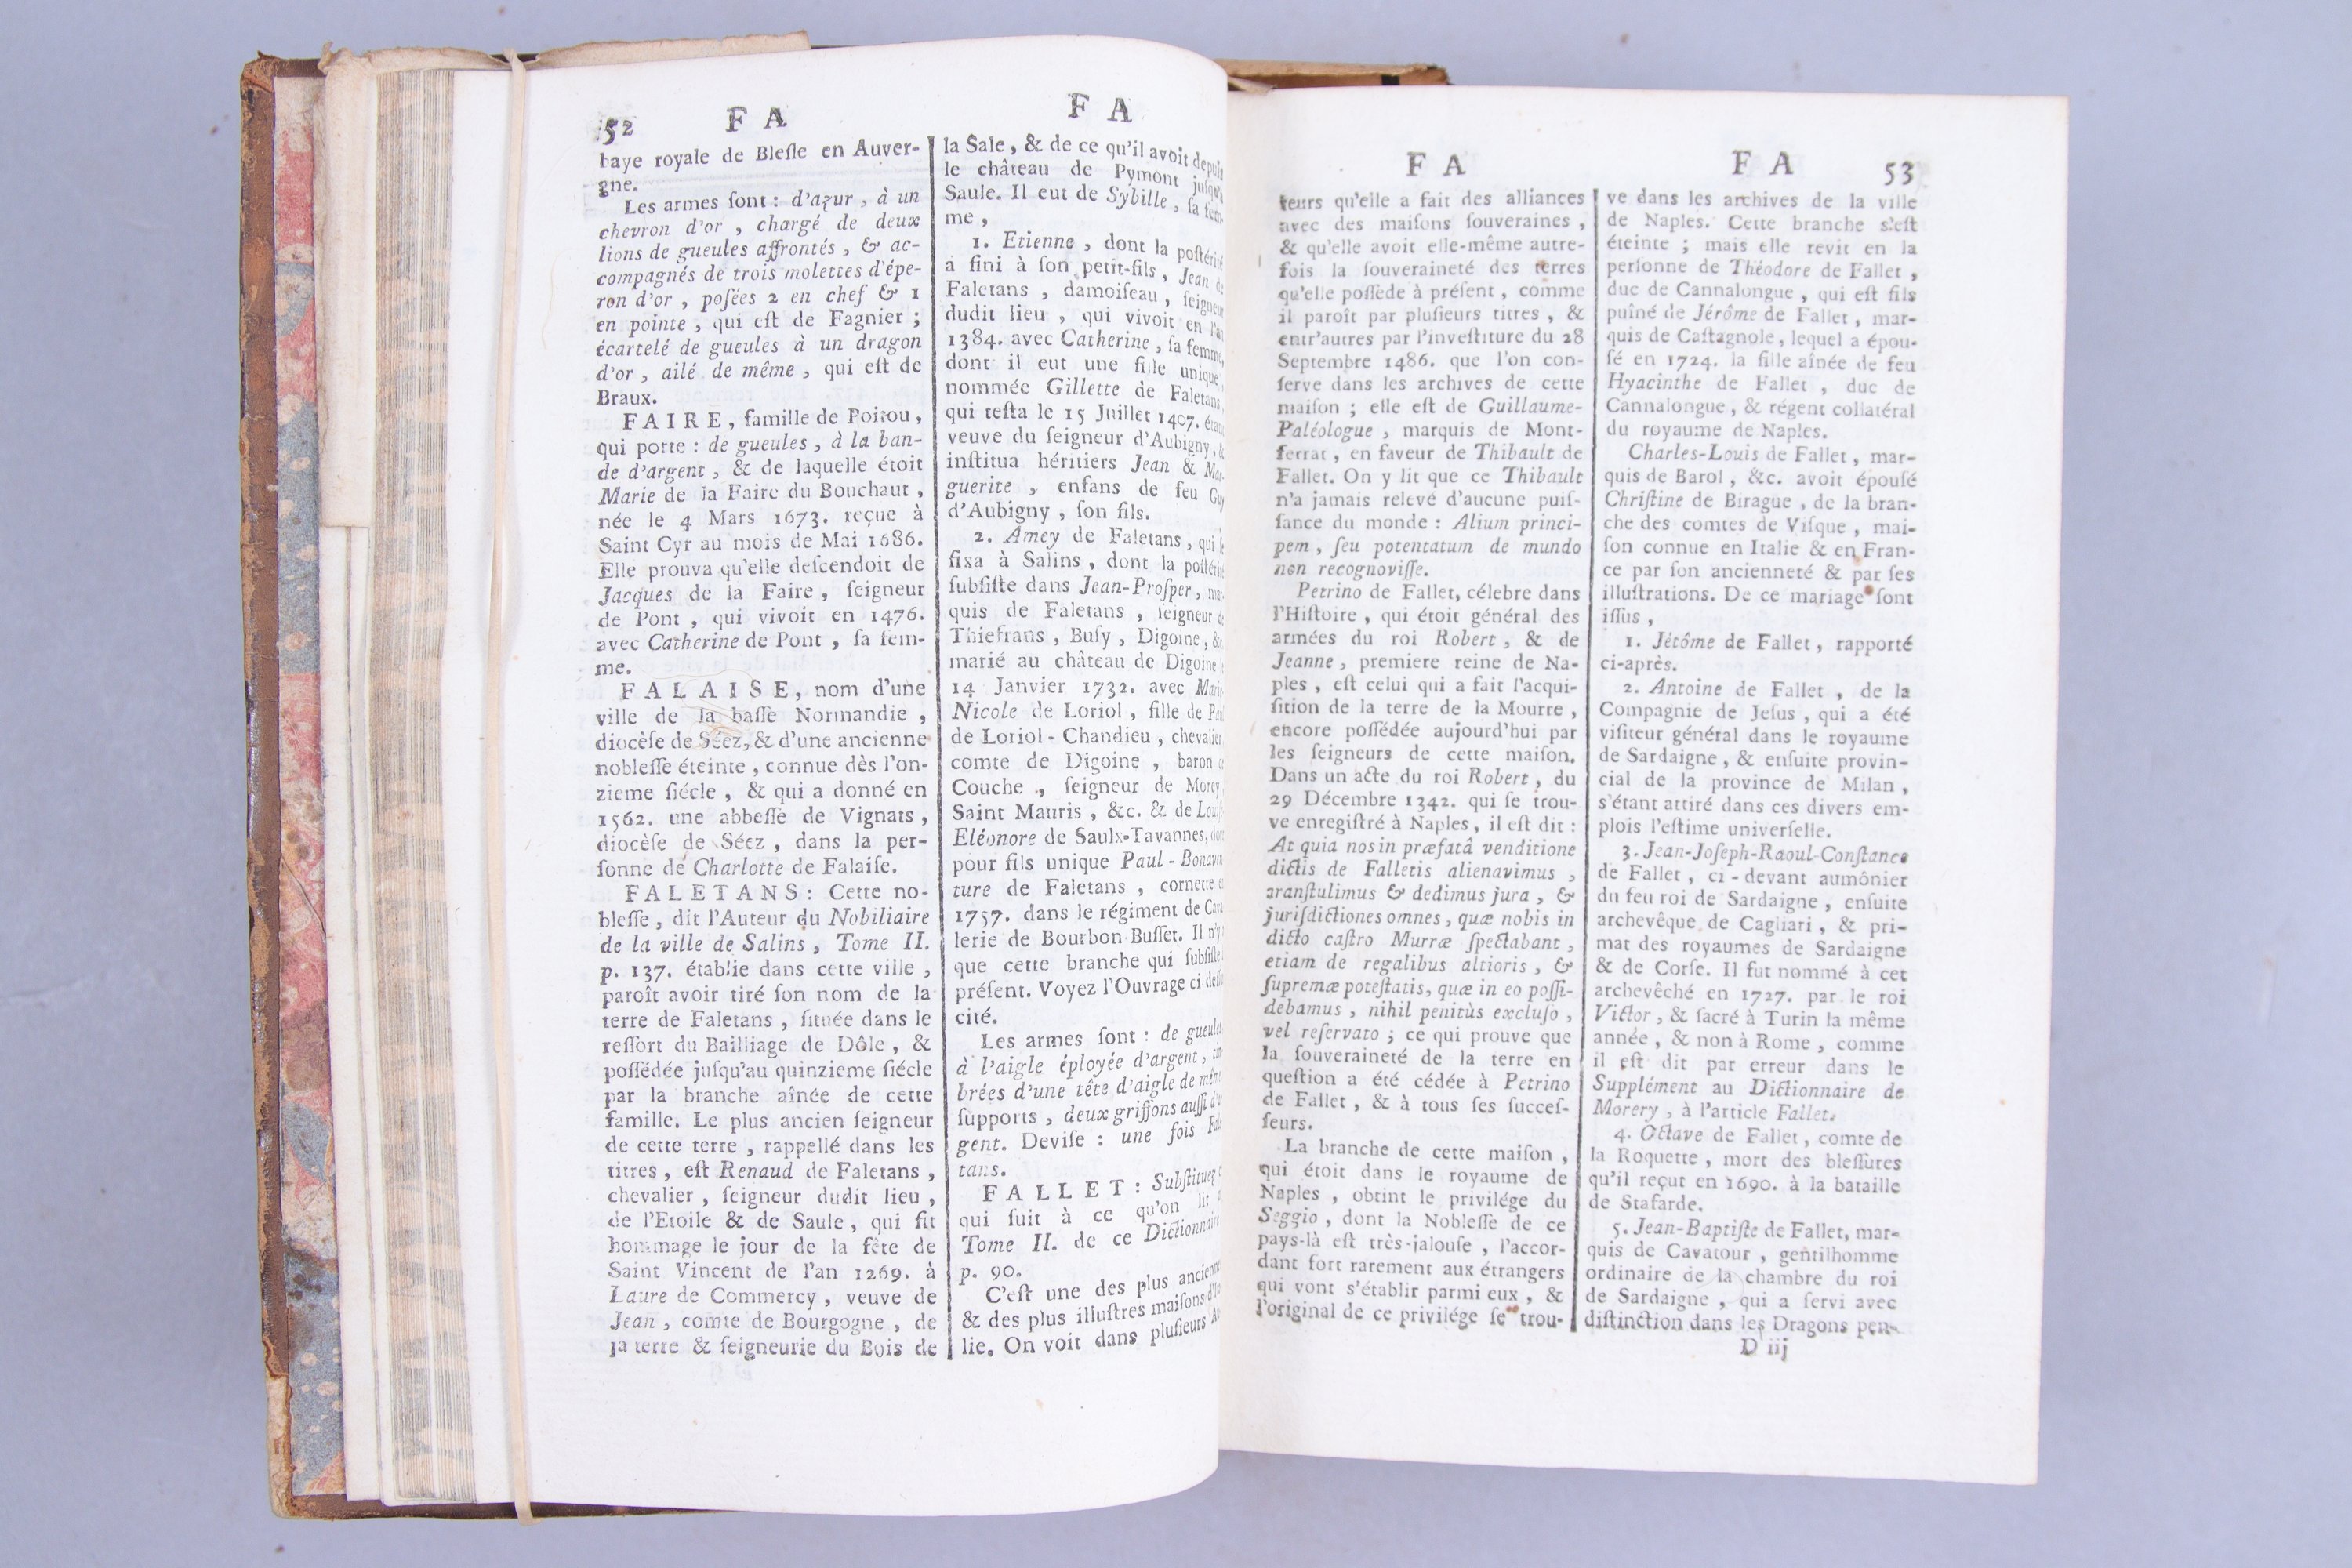 52 F A
baye royale de Blesle en Auver-
gne.
Les armes ſont : d'azur, à un
chevron d'or, chargé de deux
lions de gueules affrontés, & ac-
compagnés de trois molettes d'épe-
ron d'or, poſées 2 en chef & 1
en pointe, qui eſt de Fagnier ;
écartelé de gueules à un dragon
d'or, ailé de même, qui eſt de
Braux.
FAIRE, famille de Poitou,
qui porte : de gueules, à la ban-
de d'argent, & de laquelle étoit
Marie de la Faire du Bouchaut,
née le 4 Mars 1673. reçue à
Saint Cyr au mois de Mai 1686.
Elle prouva qu'elle deſcendoit de
Jacques de la Faire, ſeigneur
de Pont, qui vivoit en 1476.
avec Catherine de Pont, ſa fem-
me.
FALAISE, nom d'une
ville de la baſſe Normandie,
diocèſe de Séez, & d'une ancienne
nobleſſe éteinte, connue dès l'on-
zieme ſiécle, & qui a donné en
1562. une abbeſſe de Vignats,
diocèſe de Séez, dans la per-
ſonne de Charlotte de Falaiſe.
FALETANS : Cette no-
bleſſe, dit l'Auteur du Nobiliaire
de la ville de Salins, Tome II.
p. 137. établie dans cette ville,
paroît avoir tiré ſon nom de la
terre de Faletans, ſituée dans le
reſſort du Bailliage de Dôle, &
poſſédée juſqu'au quinzieme ſiécle
par la branche aînée de cette
famille. Le plus ancien ſeigneur
de cette terre, rappellé dans les
titres, eſt Renaud de Faletans,
chevalier, ſeigneur dudit lieu,
de l'Etoile & de Saule, qui fit
hommage le jour de la fête de
Saint Vincent de l'an 1269. à
Laure de Commercy, veuve de
Jean, comte de Bourgogne, de
la terre & ſeigneurie du Bois de
F A
la Sale, & de ce qu'il avoit depuis
le château de Pymont juſqu'à
Saule. Il eut de Sybille, ſa fem-
me,
1. Etienne, dont la poſtérité
a fini à ſon petit-fils, Jean de
Faletans, damoiſeau, ſeigneur
dudit lieu, qui vivoit en l'an
1384. avec Catherine, ſa femme,
dont il eut une fille unique,
nommée Gillette de Faletans,
qui teſta le 15 Juillet 1407. étant
veuve du ſeigneur d'Aubigny, &
inſtitua héritiers Jean & Mar-
guerite, enfans de feu Guy
d'Aubigny, ſon fils.
2. Amey de Faletans, qui ſe
fixa à Salins, dont la poſtérité
ſubſiſte dans Jean-Proſper, mar-
quis de Faletans, ſeigneur de
Thiefrans, Buſy, Digoine, &c.
marié au château de Digoine le
14 Janvier 1732. avec Marie-
Nicole de Loriol, fille de
de Loriol-Chandieu, chevalier,
comte de Digoine, baron de
Couche, ſeigneur de Morey,
Saint Mauris, &c. & de Louiſe-
Eléonore de Saulx-Tavannes, dont
pour fils unique Paul-Bonaven-
ture de Faletans, cornette en
1757. dans le régiment de Cava-
lerie de Bourbon-Buſſet. Il n'y a
que cette branche qui ſubſiſte à
préſent. Voyez l'Ouvrage ci-deſſus
cité.
Les armes ſont : de gueules
à l'aigle éployée d'argent, tim-
brées d'une tête d'aigle de même
ſupports, deux griffons auſſi d'ar-
gent. Deviſe : une fois Fale-
tans.
FALLET : Subſtituez ce
qui ſuit à ce qu'on lit
Tome II. de ce Dictionnaire
p. 90.
C'eſt une des plus anciennes
& des plus illuſtres maiſons d'Ita-
lie. On voit dans pluſieurs Au-
F A
teurs qu'elle a fait des alliances
avec des maiſons ſouveraines,
& qu'elle avoit elle-même autre-
fois la ſouveraineté des terres
qu'elle poſſéde à préſent, comme
il paroît par pluſieurs titres, &
entr'autres par l'inveſtiture du 28
Septembre 1486. que l'on con-
ſerve dans les archives de cette
maiſon ; elle eſt de Guillaume-
Paléologue, marquis de Mont-
ferrat, en faveur de Thibault de
Fallet. On y lit que ce Thibault
n'a jamais relevé d'aucune puiſ-
ſance du monde : Alium princi-
pem, ſeu potentatum de mundo
non recognoviſſe.
Petrino de Fallet, célebre dans
l'Hiſtoire, qui étoit général des
armées du roi Robert, & de
Jeanne, premiere reine de Na-
ples, eſt celui qui a fait l'acqui-
ſition de la terre de la Mourre,
encore poſſédée aujourd'hui par
les ſeigneurs de cette maiſon.
Dans un acte du roi Robert, du
29 Décembre 1342. qui ſe trou-
ve enregiſtré à Naples, il eſt dit :
At quia nos in præfatâ venditione
dictis de Falletis alienavimus,
tranſtulimus & dedimus jura, &
juriſdictiones omnes, quæ nobis in
dicto caſtro Murræ ſpectabant,
etiam de regalibus altioris, &
ſupremæ poteſtatis, quæ in eo poſſi-
debamus, nihil penitùs excluſo,
vel reſervato ; ce qui prouve que
la ſouveraineté de la terre en
queſtion a été cédée à Petrino
de Fallet, & à tous ſes ſucceſ-
ſeurs.
La branche de cette maiſon,
qui étoit dans le royaume de
Naples, obtint le privilége du
Seggio, dont la Nobleſſe de ce
pays-là eſt très-jalouſe, l'accor-
dant fort rarement aux étrangers
qui vont s'établir parmi eux, &
l'original de ce privilége ſe trou-
F A 53
ve dans les archives de la ville
de Naples. Cette branche s'eſt
éteinte ; mais elle revit en la
perſonne de Théodore de Fallet,
duc de Cannalongue, qui eſt fils
puîné de Jérôme de Fallet, mar-
quis de Caſtagnole, lequel a épou-
ſé en 1724. la fille aînée de feu
Hyacinthe de Fallet, duc de
Cannalongue, & régent collatéral
du royaume de Naples.
Charles-Louis de Fallet, mar-
quis de Barol, &c. avoit épouſé
Chriſtine de Birague, de la bran-
che des comtes de Viſque, mai-
ſon connue en Italie & en Fran-
ce par ſon ancienneté & par ſes
illuſtrations. De ce mariage ſont
iſſus,
1. Jétôme de Fallet, rapporté
ci-après.
2. Antoine de Fallet, de la
Compagnie de Jeſus, qui a été
viſiteur général dans le royaume
de Sardaigne, & enſuite provin-
cial de la province de Milan,
s'étant attiré dans ces divers em-
plois l'eſtime univerſelle.
3. Jean-Joſeph-Raoul-Conſtance
de Fallet, ci-devant aumônier
du feu roi de Sardaigne, enſuite
archevêque de Cagliari, & pri-
mat des royaumes de Sardaigne
& de Corſe. Il fut nommé à cet
archevêché en 1727. par le roi
Victor, & ſacré à Turin la même
année, & non à Rome, comme
il eſt dit par erreur dans le
Supplément au Dictionnaire de
Morery, à l'article Fallet.
4. Octave de Fallet, comte de
la Roquette, mort des bleſſures
qu'il reçut en 1690. à la bataille
de Stafarde.
5. Jean-Baptiſte de Fallet, mar-
quis de Cavatour, gentilhomme
ordinaire de la chambre du roi
de Sardaigne, qui a ſervi avec
diſtinction dans les Dragons pen-
D iij